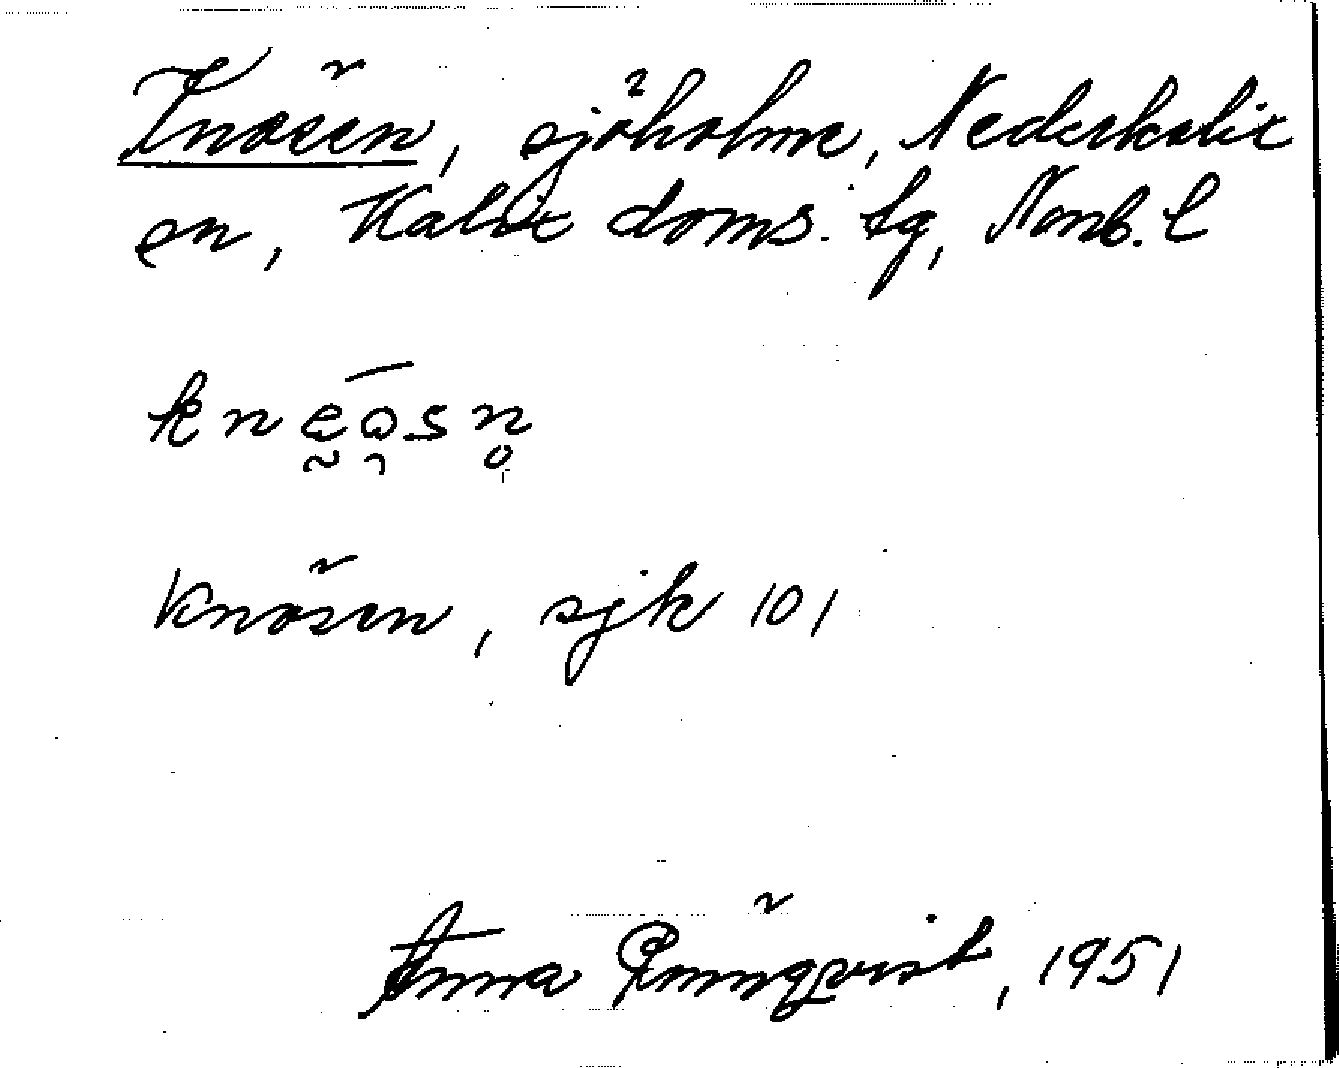 Knösen, sjöholme, Nederkalix
en, Kalix doms. tg, Norrb. l
Knösen, sjk 101
Anna Rönnqvist, 1951